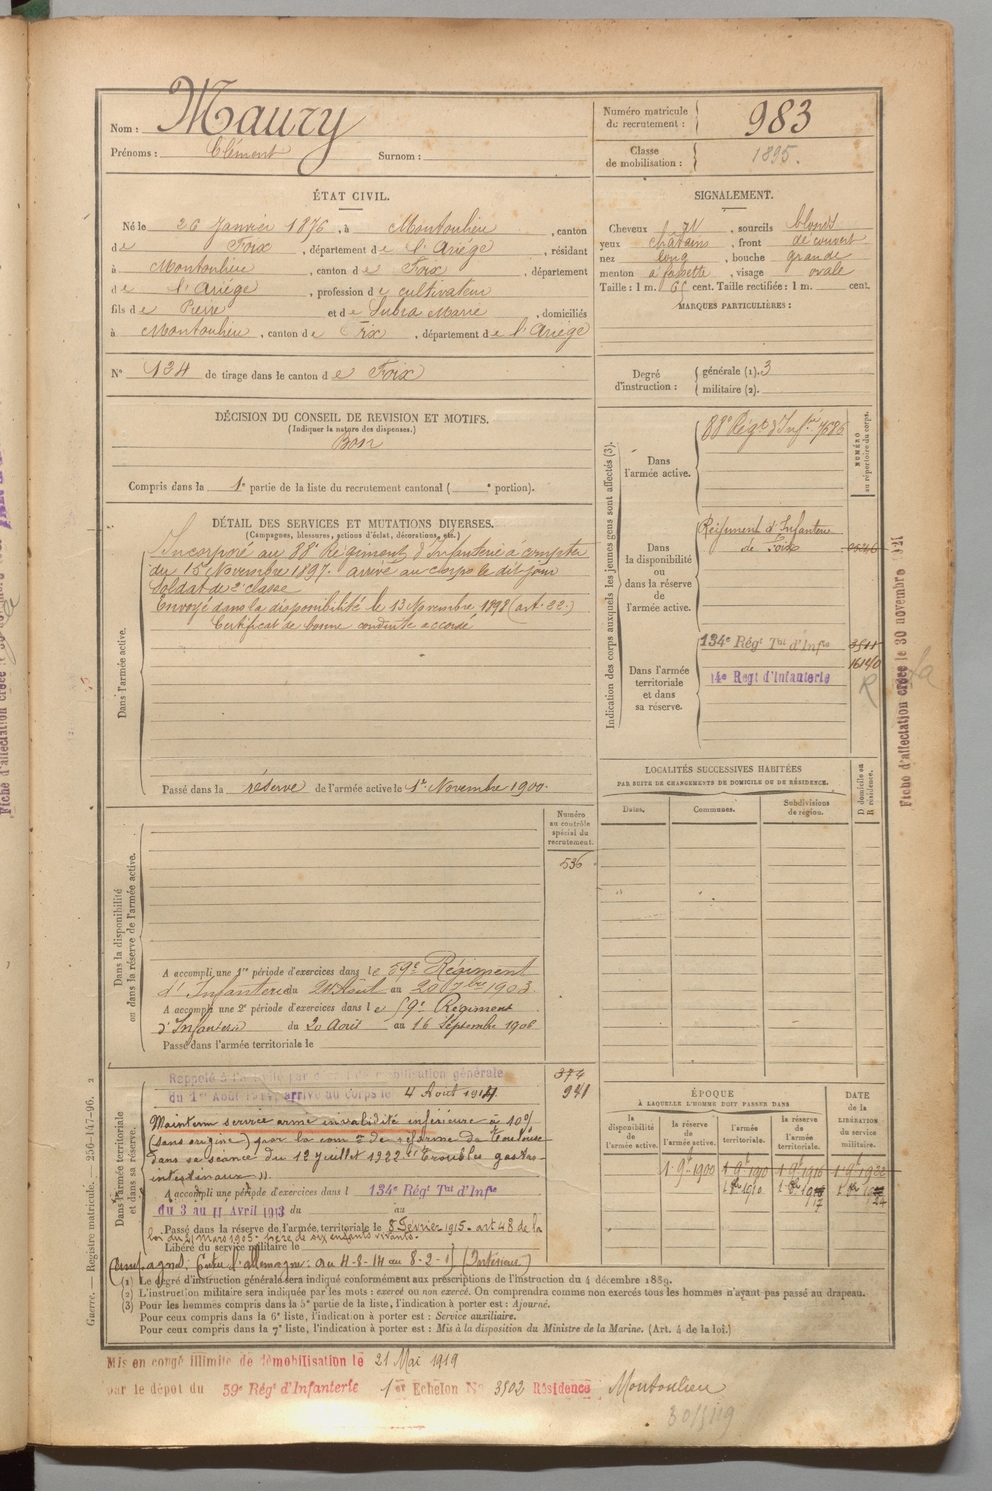 Nom : Maury
Prénoms : Clément Surnom :
Numéro matricule du recrutement : 983
Classe de mobilisation : 1895.
ÉTAT CIVIL.
Né le 26 Janvier 1876, à Montoulieu, canton
de Foix, département de l'Ariège, résidant
à Montoulieu, canton de Foix, département
de l'Ariège, profession de cultivateur
fils de Pierre et de Subra Marie, domiciliés
à Montoulieu, canton de Foix, département de l'Ariège
N° 134 de tirage dans le canton de Foix
SIGNALEMENT.
Cheveux , sourcils blonds
yeux châtains, front découvert
nez long, bouche grande
menton à fossette, visage ovale
Taille : 1 m. 65 cent. Taille rectifiée : 1 m. cent.
MARQUES PARTICULIÈRES :
Degré d'instruction : générale (1). 3
militaire (2).
DÉCISION DU CONSEIL DE REVISION ET MOTIFS.
(Indiquer la nature des dispenses.)
Bon
Compris dans la 1e partie de la liste du recrutement cantonal ( e portion).
DÉTAIL DES SERVICES ET MUTATIONS DIVERSES.
(Campagnes, blessures, actions d'éclat, décorations, etc.)
Dans l'armée active.
Incorporé au 88e Régiment d'Infanterie à compter
du 15 Novembre 1897. arrivé au corps le dit jour
Soldat de 2e classe
Envoyé dans la disponibilité le 13 Novembre 1898 (art. 22.)
Certificat de bonne conduite accordé
Passé dans la réserve de l'armée active le 1er Novembre 1900.
Indication des corps auxquels les jeunes gens sont affectés (3).
NUMÉRO au répertoire du corps.
Dans l'armée active.
88e Régt d'Infie 7686
Dans la disponibilité ou dans la réserve de l'armée active.
Régiment d'Infanterie
de Foix
Dans l'armée territoriale et dans sa réserve.
134e Régt Tal d'Infie
14e Regt d'Infanterie
16140
R
Fiche d'affectation créée le 30 novembre 1921
LOCALITÉS SUCCESSIVES HABITÉES
PAR SUITE DE CHANGEMENTS DE DOMICILE OU DE RÉSIDENCE.
D domicile ou R résidence.
Dates. Communes. Subdivisions de région.
Numéro au contrôle spécial du recrutement.
536
Dans la disponibilité ou dans la réserve de l'armée active.
A accompli une 1re période d'exercices dans le 59e Régiment
d'Infanterie du 24 Août au 20 7bre 1903.
A accompli une 2e période d'exercices dans le 59e Régiment
d'Infanterie du 20 Août au 16 Septembre 1906
Passé dans l'armée territoriale le
Dans l'armée territoriale et dans sa réserve.
Rappelé à l'activité par décret de mobilisation générale
du 1er Août 1914, arrivé au corps le 4 Août 1914.
374
941
Maintenu service armé invalidité inférieure à 10%
(sans origine) par la com on de réforme de Toulouse
dans sa séance du 12 juillet 1922 "Troubles gastro-
intestinaux".
A accompli une période d'exercices dans l 134e Régt Tal d'Infie
du 3 au 11 Avril 1913 du au
Passé dans la réserve de l'armée territoriale le 8 Février 1915. art 48 de la
loi du 21 mars 1905. père de six enfants vivants.
Libéré du service militaire le
Campagne: Contre l'allemagne: du 4-8-14 au 8-2-1 (Intérieur)
ÉPOQUE
À LAQUELLE L'HOMME DOIT PASSER DANS
la disponibilité de l'armée active. la réserve de l'armée active. l'armée territoriale. la réserve de l'armée territoriale.
DATE de la LIBÉRATION du service militaire.
1 9e 1900 1 9e 1910 1 9e 1916 1 9e 1922
(1) Le degré d'instruction générale sera indiqué conformément aux prescriptions de l'Instruction du 4 décembre 1889.
(2) L'instruction militaire sera indiquée par les mots : exercé ou non exercé. On comprendra comme non exercés tous les hommes n'ayant pas passé au drapeau.
(3) Pour les hommes compris dans la 5e partie de la liste, l'indication à porter est : Ajourné.
Pour ceux compris dans la 6e liste, l'indication à porter est : Service auxiliaire.
Pour ceux compris dans la 7e liste, l'indication à porter est : Mis à la disposition du Ministre de la Marine. (Art. 4 de la loi.)
Guerre. — Registre matricule. — 256-147-96. 2
Mis en congé illimité de démobilisation le 21 Mai 1919
par le dépot du 59e Régt d'Infanterie 1er Echelon N° 3502 Résidence Montoulieu